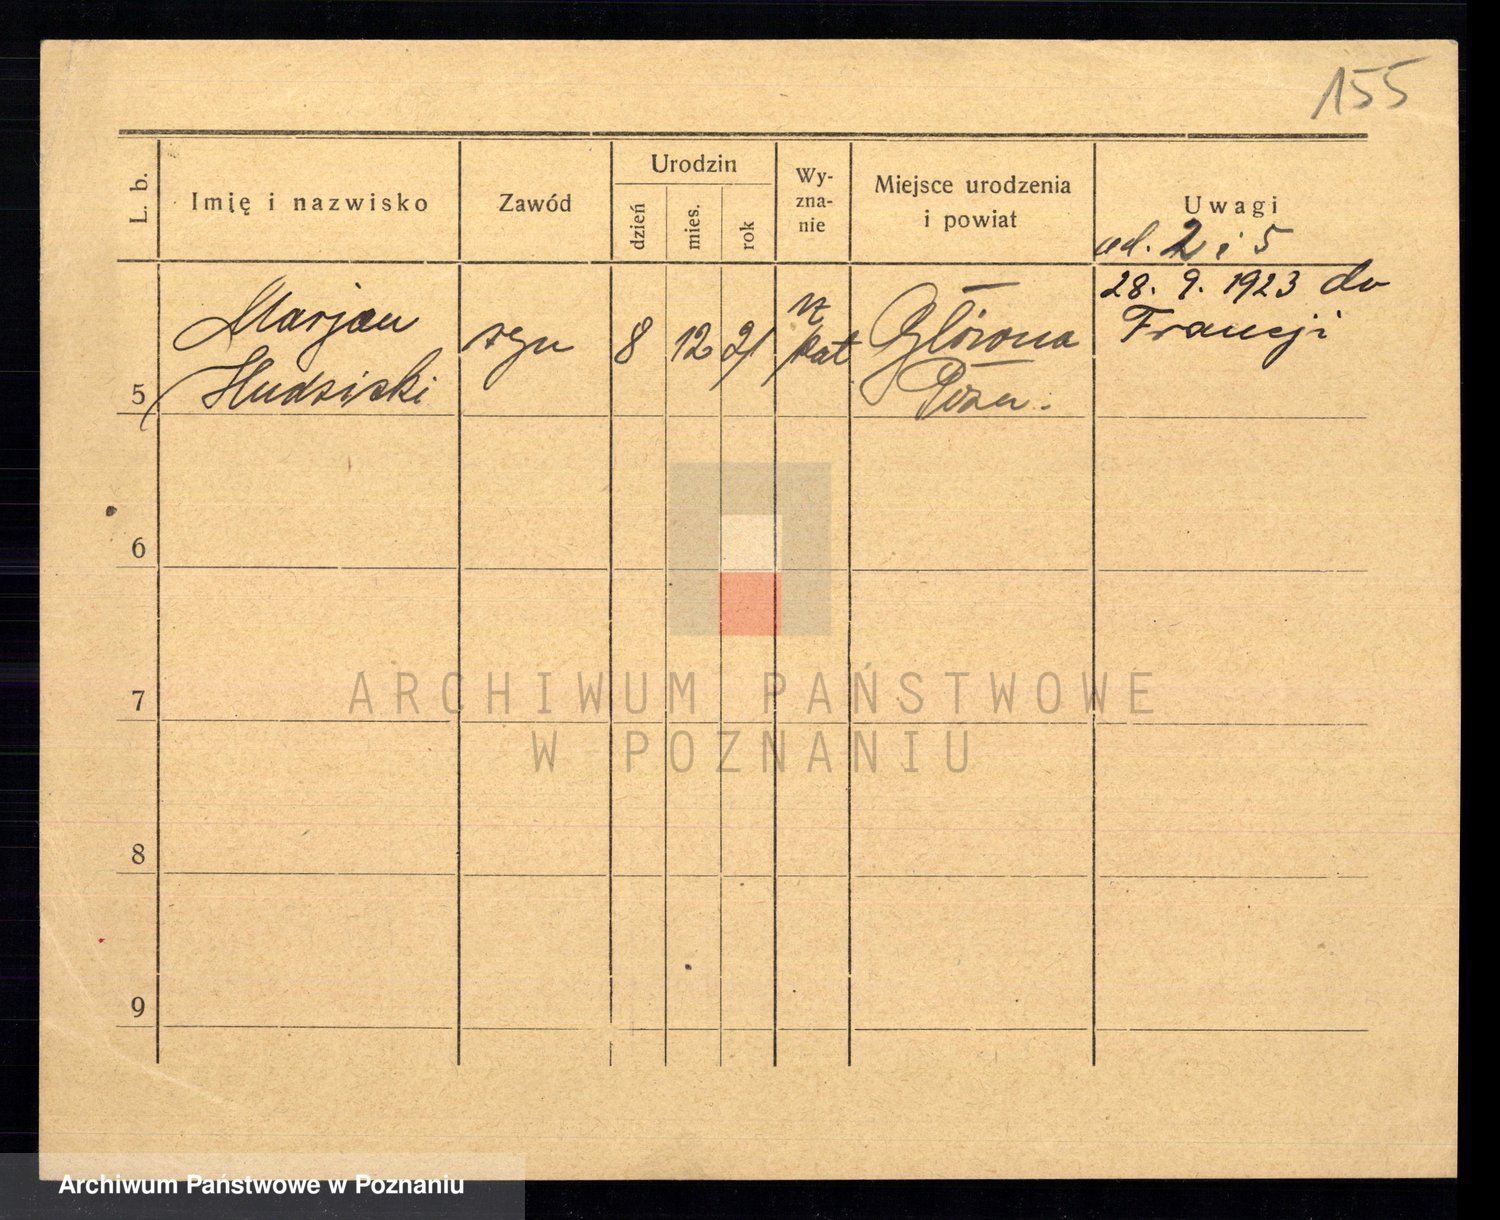 155
L. b.
Imię i nazwisko
Zawód
Urodzin
dzień
mies.
rok
Wy-
zna-
nie
Miejsce urodzenia
i powiat
Uwagi
ad. 2 i 5
28. 9. 1923 do
Francji
Marjan
syn
8
12
21
kat
Główna
Pozn.
5
6
7
8
9
ARCHIWUM PAŃSTWOWE
W POZNANIU
Archiwum Państwowe w Poznaniu